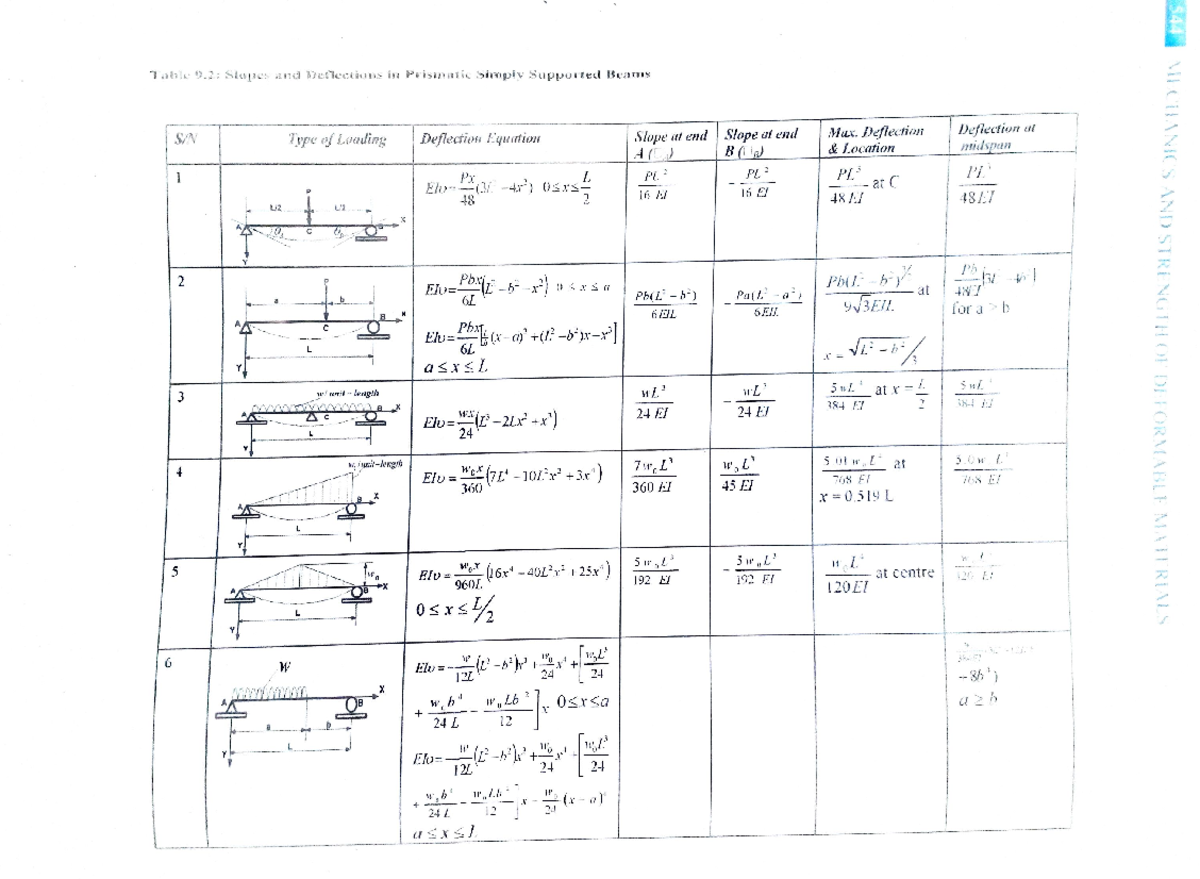 544
MECHANICS AND STRENGTH OF DEFORMABLE MATERIALS
Table 9.2: Slopes and Deflections in Prismatic Simply Supported Beams
S/N Type of Loading Deflection Equation Slope at end A ( ) Slope at end B ( B) Max. Deflection & Location Deflection at midspan
1
P
L/2 L/2
A θ C θ B X
Y
EIυ= Px/48 (3L² −4x²) 0≤x≤ L/2
PL²/16 EI
− PL²/16 EI
PL³/48 EI at C
PL³/48EI
2
P
a b
A C B X
L
Y
EIυ= Pbx/6L (L² −b² −x²) 0 ≤ x ≤ a
EIυ= Pbx/6L [L/b (x−a)³ +(L² −b²)x−x³]
a ≤ x ≤ L
Pb(L² − b²)/6EIL
− Pa(L² − a²)/6EIL
Pb(L² − b²)^3/2 / 9√3EIL at
x = √L² − b² / 3
Pb/48EI [3L² −4b²]
for a > b
3
w/unit−length
A C B X
L
Y
EIυ= wx/24 (L³ −2Lx² +x³)
wL³/24 EI
− wL³/24 EI
5wL⁴/384 EI at x = L/2
5wL⁴/384 EI
4
w₀/unit−length
A B X
L
Y
EIυ = w₀x/360 (7L⁴ −10L²x² +3x⁴)
7w₀L³/360 EI
w₀L³/45 EI
5.01w₀L⁴/768 EI at
x = 0.519 L
5.0w₀L⁴/768 EI
5
w₀
A B X
L
Y
EIυ = w₀x/960L (16x⁴ −40L²x² +25x⁴)
0 ≤ x ≤ L/2
5w₀L³/192 EI
− 5w₀L³/192 EI
w₀L⁴/120EI at centre
w₀L⁴/120 EI
6
W
A B X
a b
L
Y
EIυ=− w/12L (L² −b²)x³ + w₀/24 x⁴ + [w₀L³/24
+ w₀b⁴/24 L − w₀Lb²/12] x 0≤x≤a
EIυ=− w/12L (L² −b²)x³ + w₀/24 x⁴ + [w₀L³/24
+ w₀b⁴/24 L − w₀Lb²/12] x − w₀/24 (x − a)⁴
a ≤ x ≤ L
−8b⁴)
a ≥ b